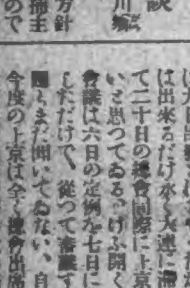 談
川
方針
播主
ので
は出來るだけ永く大連に滯
て二十日の總會間際に上京
いと思つてゐる、けふ開く
會議は六日の定例を七日に
しただけで、從つて審議す
まだ聞いてゐない、自
今度の上京は全く總會出席